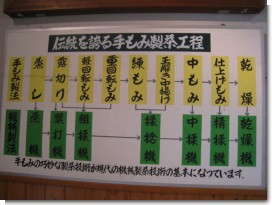 伝統を誇る手もみ製茶工程
手もみ製法
蒸し
露切り
軽回転もみ
重回転もみ
練もみ
玉解き中揚げ
中もみ
仕上げもみ
乾燥
機械製法
蒸機
葉打機
粗揉機
揉捻機
中揉機
精揉機
乾燥機
手もみの巧妙な製茶技術が現代の機械製茶技術の基本になっています。